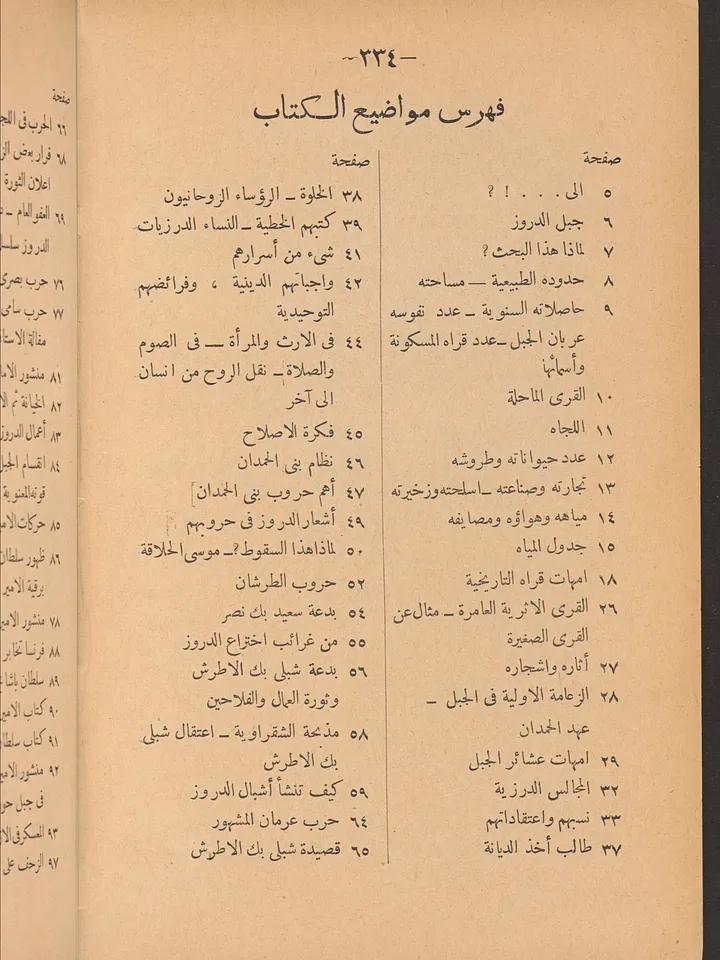 —٣٣٤—
فهرس مواضيع الكتاب
صفحة
٥ الى . . . . ! ?
٦ جبل الدروز
٧ لماذا هذا البحث ?
٨ حدوده الطبيعية — مساحته
٩ حاصلاته السنوية ـ عدد نفوسه
عربان الجبل ـ عدد قراه المسكونة
وأسمائها
١٠ القرى الماحلة
١١ اللجاه
١٢ عدد حيواناته وطروشه
١٣ تجارته وصناعته ـ اسلحته وزخيرته
١٤ مياهه وهواؤه ومصايفه
١٥ جدول المياه
١٨ امهات قراه التاريخية
٢٦ القرى الاثرية العامرة ـ مثال عن
القرى الصغيرة
٢٧ أثاره واشجاره
٢٨ الزعامة الاولية فى الجبل ـ
عهد الحمدان
٢٩ امهات عشائر الجبل
٣٢ المجالس الدرزية
٣٣ نسبهم واعتقاداتهم
٣٧ طالب أخذ الديانة
صفحة
٣٨ الخلوة ـ الرؤساء الزوحانيون
٣٩ كتبهم الخطية ـ النساء الدرزيات
٤١ شىء من أسرارهم
٤٢ واجباتهم الدينية ، وفرائضهم
التوحيدية
٤٤ فى الارث والمرأة ـ فى الصوم
والصلاة ـ نقل الروح من انسان
الى آخر
٤٥ فكرة الاصلاح
٤٦ نظام بنى الحمدان
٤٧ أهم حروب بنى الحمدان
٤٩ أشعار الدروز فى حروبهم
٥٠ لماذا هذا السقوط?ـ موسى الحلاقة
٥٢ حروب الطرشان
٥٤ بدعة سعيد بك نصر
٥٥ من غرائب اختراع الدروز
٥٦ بدعة شبلى بك الاطرش
وثورة العمال والفلاحين
٥٨ مذبحة الشقراوية ـ اعتقال شبلى
بك الاطرش
٥٩ كيف تنشأ أشبال الدروز
٦٤ حرب عرمان المشهور
٦٥ قصيدة شبلى بك الاطرش
صفحة
٦٦ الحرب فى
٦٨ فرار بعض
اعلان الثورة
٦٩ العفو العام ـ
الدروز
٧٦ حرب بصرى
٧٧ حرب سامى
مقالة
٨١ منشور
٨٢ الخيانة ثم
٨٣ أعمال الدروز
٨٤ انقسام
قوته المعنوية
٨٥ حركات
٨٦ ظهور سلطان
برقية الامير
٧٨ منشور
٨٨ فرنسا تخابر
٨٩ سلطان باشا
٩٠ كتاب
٩١ كتاب
٩٢ منشور
فى جبل
٩٣ العسكر فى
٩٧ الزحف على